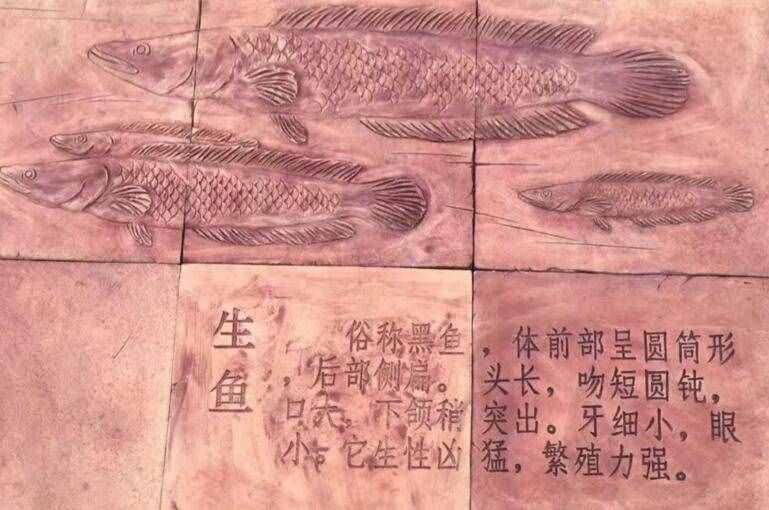 生鱼
俗称黑鱼，体前部呈圆筒形
，后部侧扁。头长，吻短圆钝，
口大，下颌稍突出。牙细小，眼
小。它生性凶猛，繁殖力强。